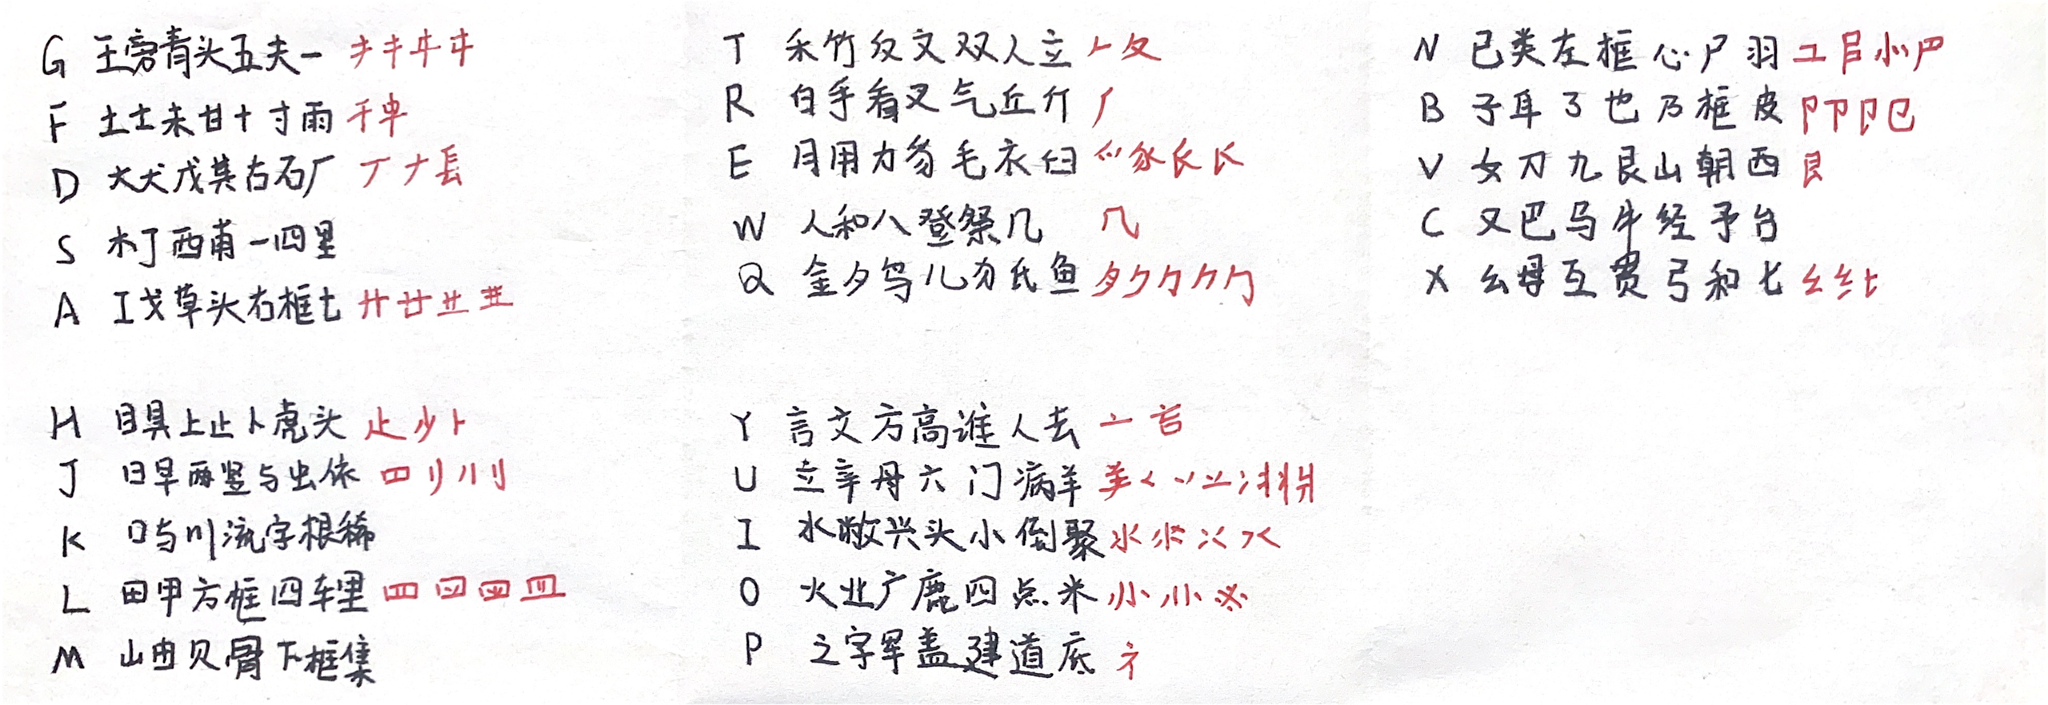 G 王旁青头五夫一
F 土士未甘十寸雨
D 大犬戊其古石厂 丆ナ镸
S 木丁西甫一四里
A 工戈草头右框七 廾廿
H 目具上止卜虎头
J 日早两竖与虫依 刂
K 口与川流字根稀
L 田甲方框四车里 罒皿
M 山由贝骨下框集
T 禾竹攵文双人立 𠂉夂
R 白手看叉气丘斤
E 月用力豸毛衣臼
W 人和八登祭几
Q 金夕鸟儿勿氏鱼 勹
Y 言文方高谁人去 亠
U 立辛丹六门病羊
I 水敝兴头小倒聚
O 火业广鹿四点米
P 之字军盖建道底 礻
N 已类左框心尸羽
B 子耳了也乃框皮 卩
V 女刀九艮山朝西
C 又巴马牛经予台
X 幺母互贯弓和匕